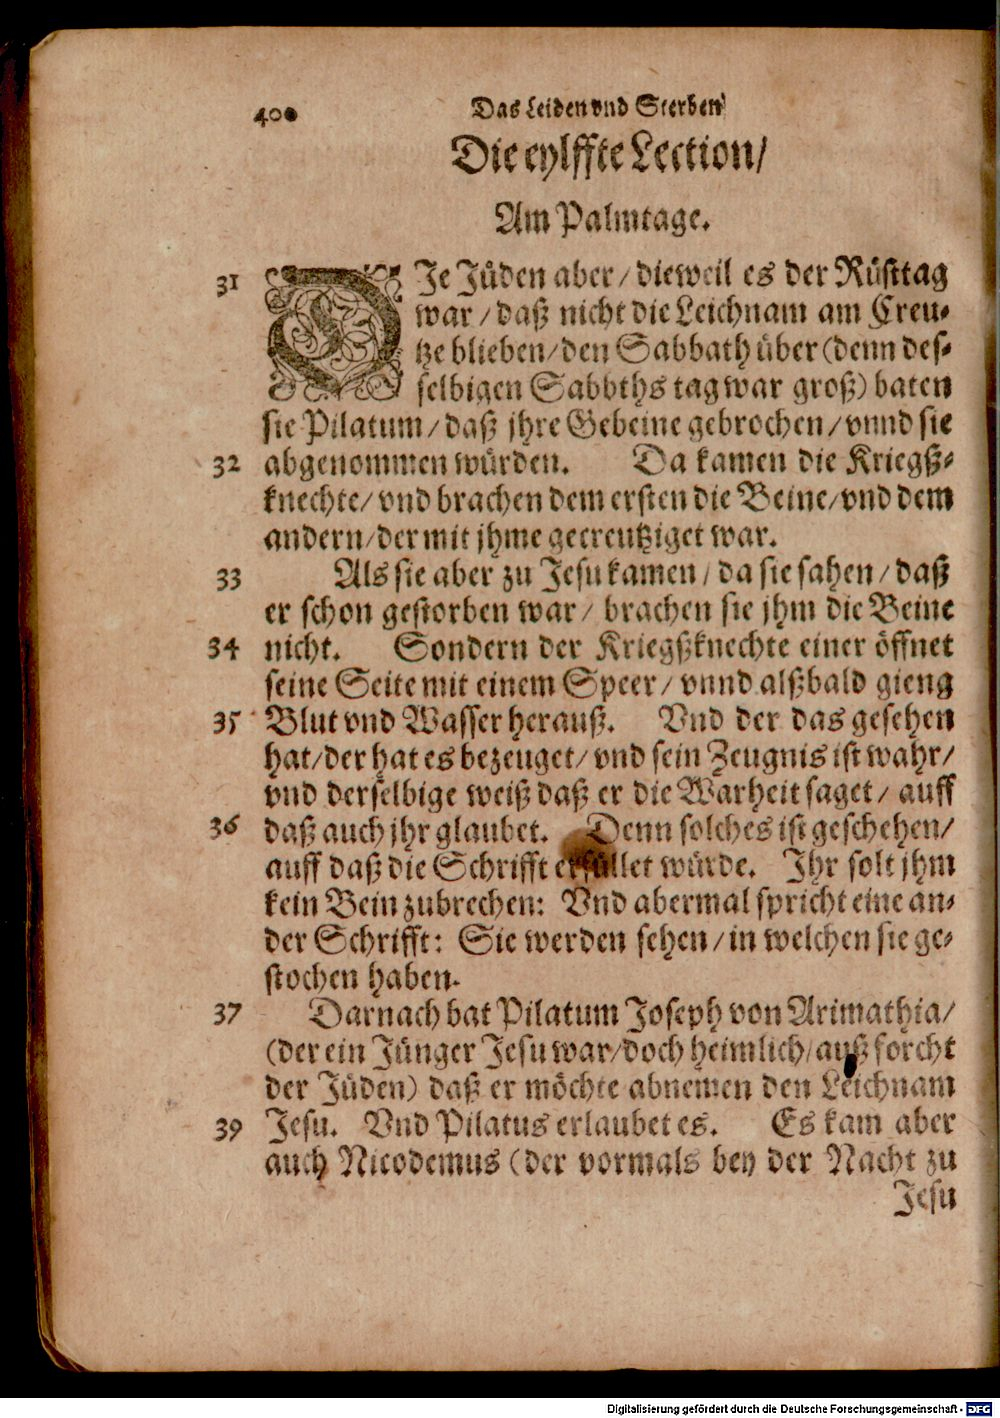 400 Das Leiden vnd Sterben
Die eylffte Lection/
Am Palmtage.
31 DJe Jüden aber/ dieweil es der Rüsttag
war/ daß nicht die Leichnam am Creu-
tze blieben/ den Sabbath über (denn des-
selbigen Sabbths tag war groß) baten
sie Pilatum/ daß jhre Gebeine gebrochen/ vnnd sie
32 abgenommen würden. Da kamen die Kriegß-
knechte/ vnd brachen dem ersten die Beine/ vnd dem
andern/ der mit jhme gecreutziget war.
33 Als sie aber zu Jesu kamen/ da sie sahen/ daß
er schon gestorben war/ brachen sie jhm die Beine
34 nicht. Sondern der Kriegßknechte einer öffnet
seine Seite mit einem Speer/ vnnd alßbald gieng
35 Blut vnd Wasser herauß. Vnd der das gesehen
hat/ der hat es bezeuget/ vnd sein Zeugnis ist wahr/
vnd derselbige weiß daß er die Warheit saget/ auff
36 daß auch jhr glaubet. Denn solches ist geschehen/
auff daß die Schrifft erfüllet würde. Ihr solt jhm
kein Bein zubrechen: Vnd abermal spricht eine an-
der Schrifft: Sie werden sehen/ in welchen sie ge-
stochen haben.
37 Darnach bat Pilatum Joseph von Arimathia/
(der ein Jünger Jesu war/ doch heimlich/ auß forcht
der Jüden) daß er möchte abnemen den Leichnam
39 Jesu. Vnd Pilatus erlaubet es. Es kam aber
auch Nicodemus (der vormals bey der Nacht zu
Jesu
Digitalisierung gefördert durch die Deutsche Forschungsgemeinschaft - DFG